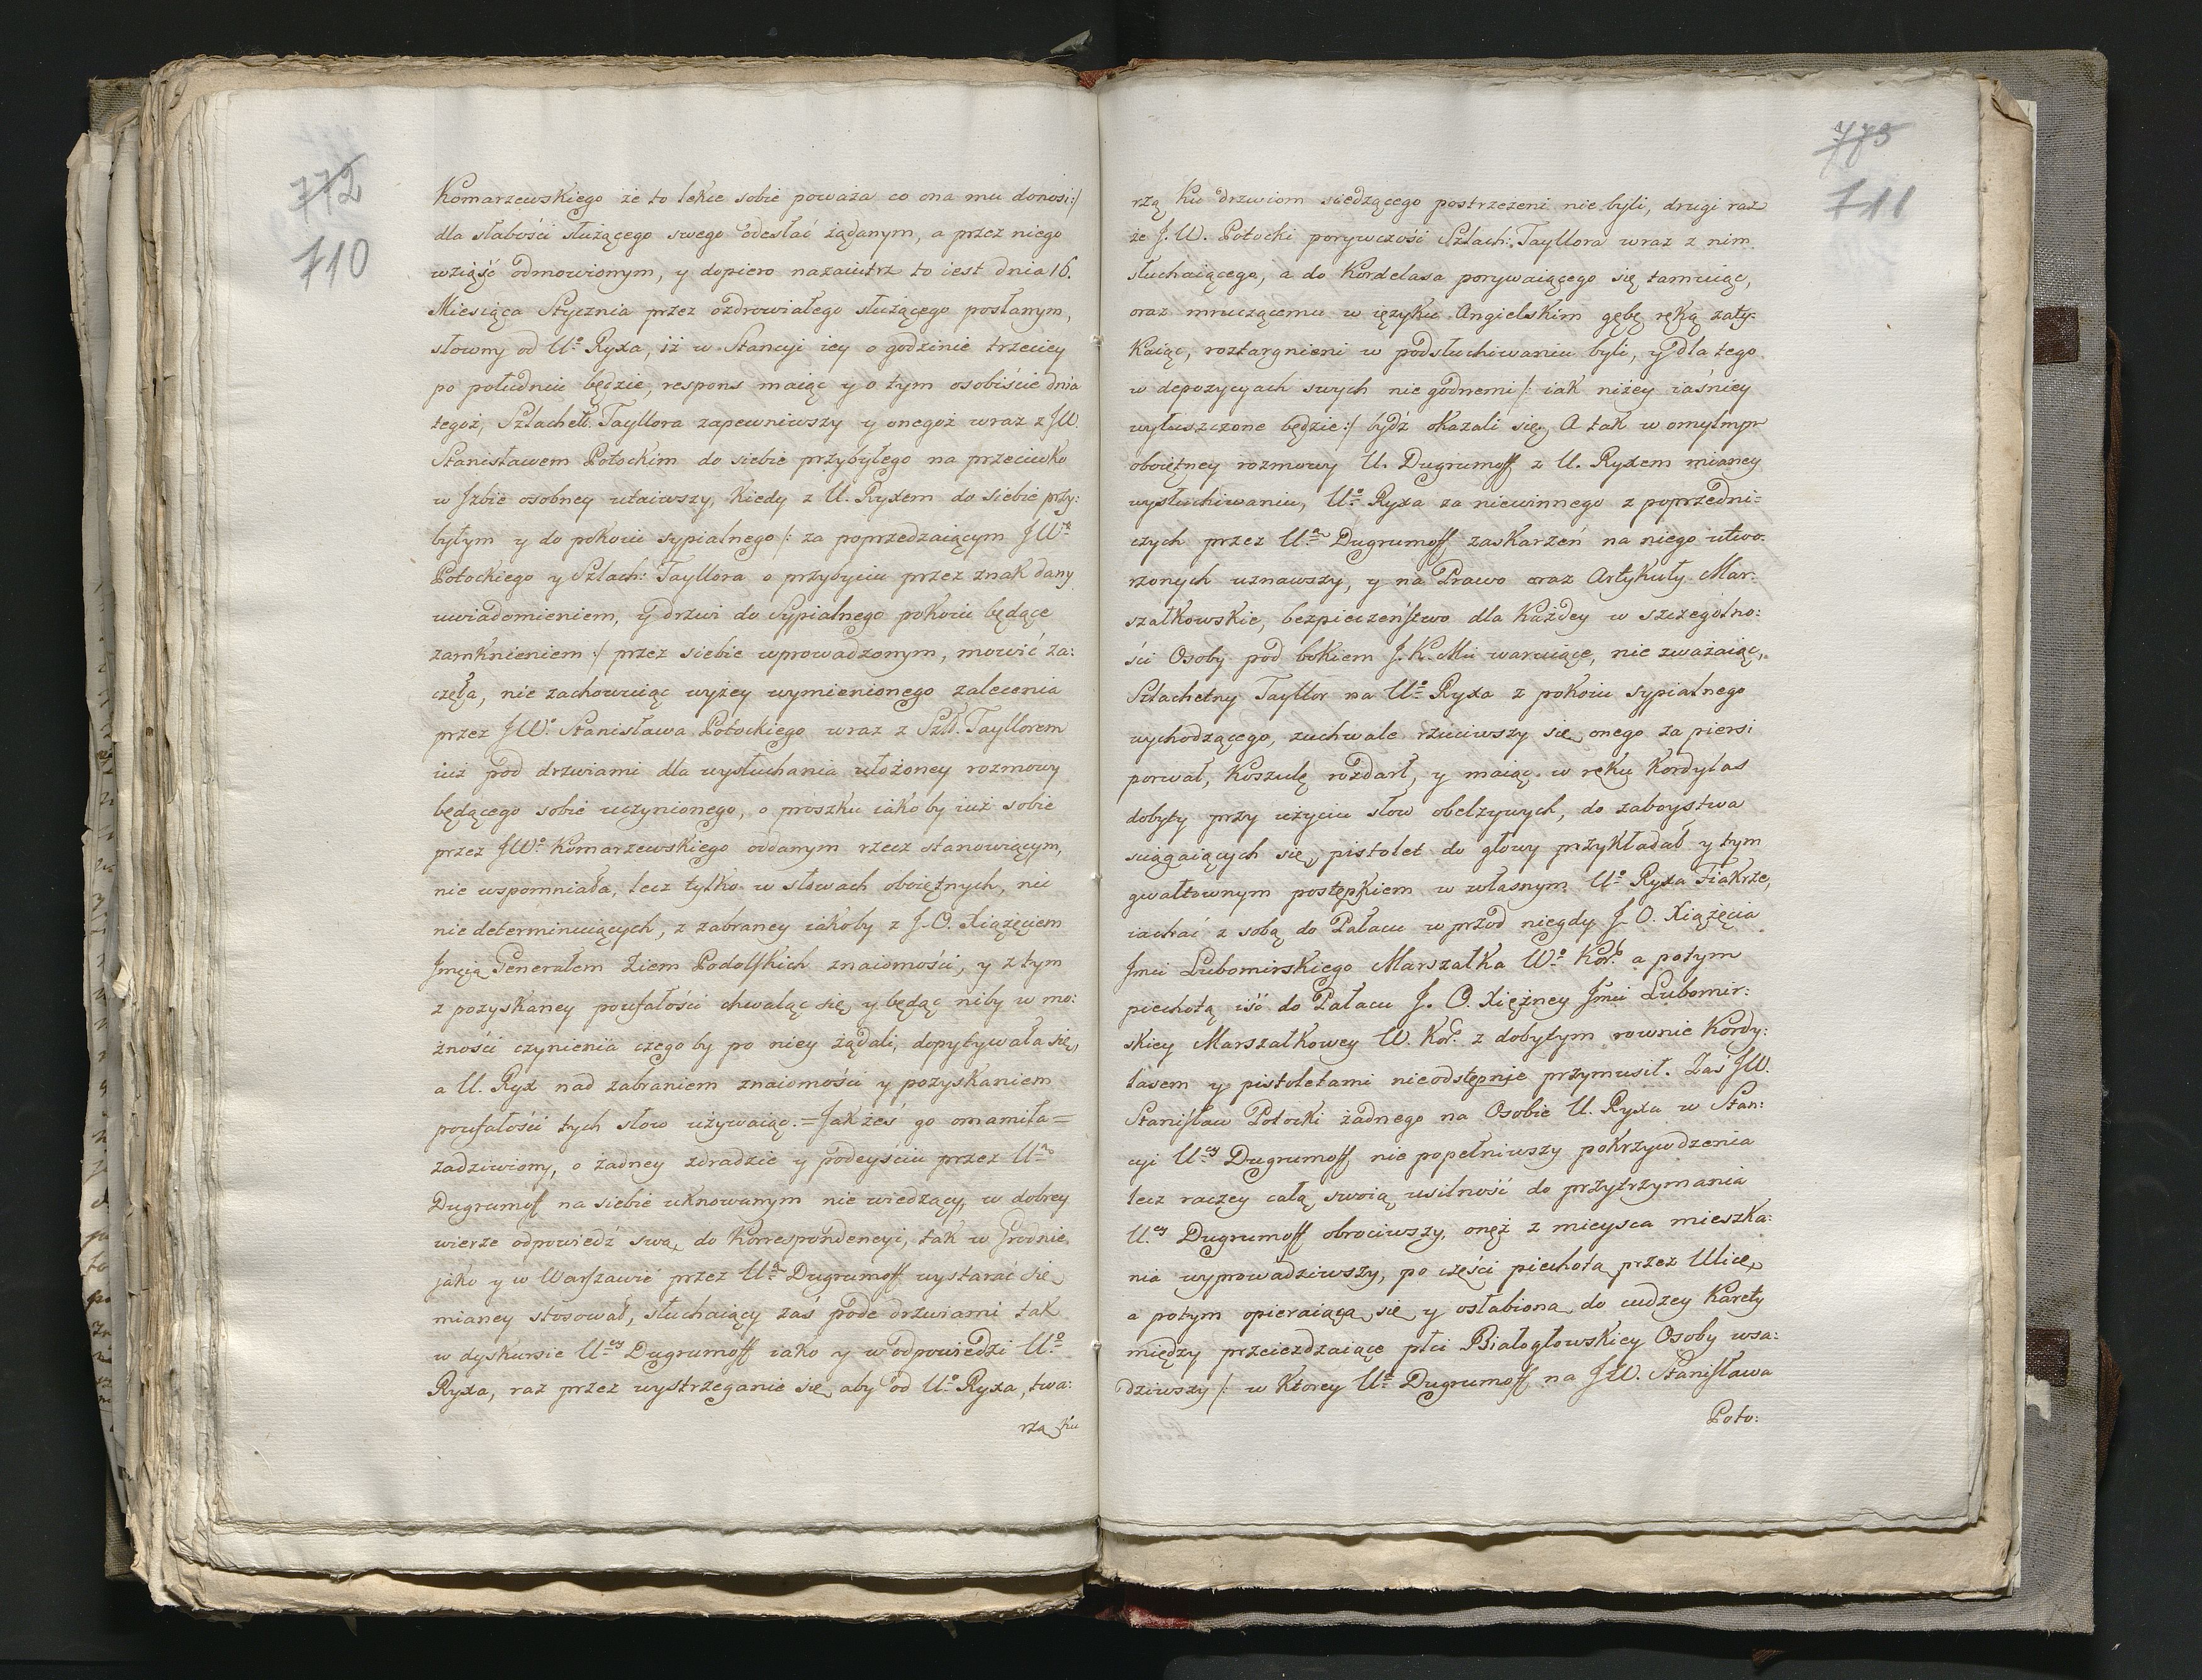 772
710
Komarzewskiego że to lekce sobie poważa co ona mu donosi:/
dla słabości służącego swego odesłać żądanym, a przez niego
wziąść odmowionym, y dopiero nazaiutrz to iest dnia 16.
Miesiąca Stycznia przez ozdrowiałego służącego posłanym,
słowny od U.º Ryxa, iż w Stancyi iey o godzinie trzeciey
po południu będzie, respons maiąc y o tym osobiście dnia
tegoż, Szlachett. Tayllora zapewniwszy y onegoż wraz z JW.
Stanisławem Potockim do siebie przybyłego na przeciwko
w Jzbie osobney utaiwszy, kiedy z U. Ryxem do siebie przy:
byłym y do pokoiu sypialnego /: za poprzedzaiącym JWº
Potockiego y Szlach: Tayllora o przybyciu przez znak dany
uwiadomieniem, y drzwi do sypialnego pokoiu będące
zamknieniem :/ przez siebie wprowadzonym, mowić za:
częła, nie zachowuiąc wyżey wymienionego zalecenia
przez JWº Stanisława Potockiego wraz z Szl. Tayllorem
iuż pod drzwiami dla wysłuchania ułożoney rozmowy
będącego sobie uczynionego, o proszku iakoby iuż sobie
przez JWº Komarzewskiego oddanym rzecz stanowiącym,
nie wspomniała, lecz tylko w słowach oboiętnych, nic
nie determinuiących, z zabraney iakoby z J. O. Xiążęciem
Jmcią Generałem Ziem Podolskich znaiomości, y z tym
z pozyskaney poufałości chwaląc się y będąc niby w mo:
żności czynienia czego by po niey żądali, dopytywała się,
a U. Ryx nad zabraniem znaiomości y pozyskaniem
poufałości tych słow używaiąc = Jakżeś go omamiła =
zadziwiony, o żadney zdradzie y podeyściu przez Uą
Dugrumoff na siebie uknowanym nie wiedzący, w dobrey
wierze odpowiedź swą, do korrespondencyi, tak w Grodnie
jako y w Warszawie przez Uą Dugrumoff wystarać się
mianey stosował, słuchaiący zaś pode drzwiami tak
w dyskursie Uey Dugrumoff iako y w odpowiedzi Uº
Ryxa, raz przez wystrzeganie się, aby od Uº Ryxa, twa:
rzą ku
773
711
rzą ku drzwiom siedzącego postrzeżeni nie byli, drugi raz
że J. W. Potocki porywczość Szlach: Tayllora wraz z nim
słuchaiącego, a do Kordelasa porywaiącego się tamuiąc,
oraz mruczącemu w ięzyku Angielskim gębę ręką zaty:
kaiąc, roztargnieni w podsłuchiwaniu byli, y dla tego
w depozycyach swych nie godnemi /: iak niżey iaśniey
wyłuszczone będzie :/ bydź okazali się. A tak w omylnym
oboiętney rozmowy U. Dugrumoff z U. Ryxem mianey
wysłuchiwaniu, Uº Ryxa za niewinnego z poprzedni:
czych przez Uą Dugrumoff zaskarżeń na niego utwo:
rzonych uznawszy, y na Prawo oraz Artykuły Mar:
szałkowskie, bezpieczeństwo dla każdey w szczegolno:
ści Osoby pod bokiem J. K. Mci waruiące, nie zważaiąc,
Szlachetny Tayllor na Uº Ryxa z pokoiu sypialnego
wychodzącego, zuchwale rzuciwszy się, onego za piersi
porwał, koszulę rozdarł, y maiąc w ręku kordylas
dobyty przy użyciu słow obelżywych, do zaboystwa
sciągaiących się, pistolet do głowy przykładał y tym
gwałtownym postępkiem w własnym Uº Ryxa Fiakrze,
iachać z sobą do Pałacu w przod niegdy J. O. Xiążęcia
Jmci Lubomirskiego Marszałka Wº Kor. a potym
piechotą iść do Pałacu J. O. Xiężney Jmci Lubomir:
skiey Marszałkowey W. Kor. z dobytym rownie kordy:
lasem y pistoletami nieodstępnie przymusił. Zaś JW.
Stanisław Potocki żadnego na Osobie U. Ryxa w Stan:
cyi Uey Dugrumoff nie popełniwszy pokrzywdzenia
lecz raczey całą swoią usilność do przytrzymania
Uey Dugrumoff obrociwszy, onęż z mieysca mieszka:
nia wyprowadziwszy, po części piechotą przez Ulicę,
a potym opieraiącą się y osłabioną do cudzey Karety
między przeieżdzaiące płci Białogłowskiey Osoby wsa:
dziwszy /: w ktorey Uª Dugrumoff na JW. Stanisława
Poto: